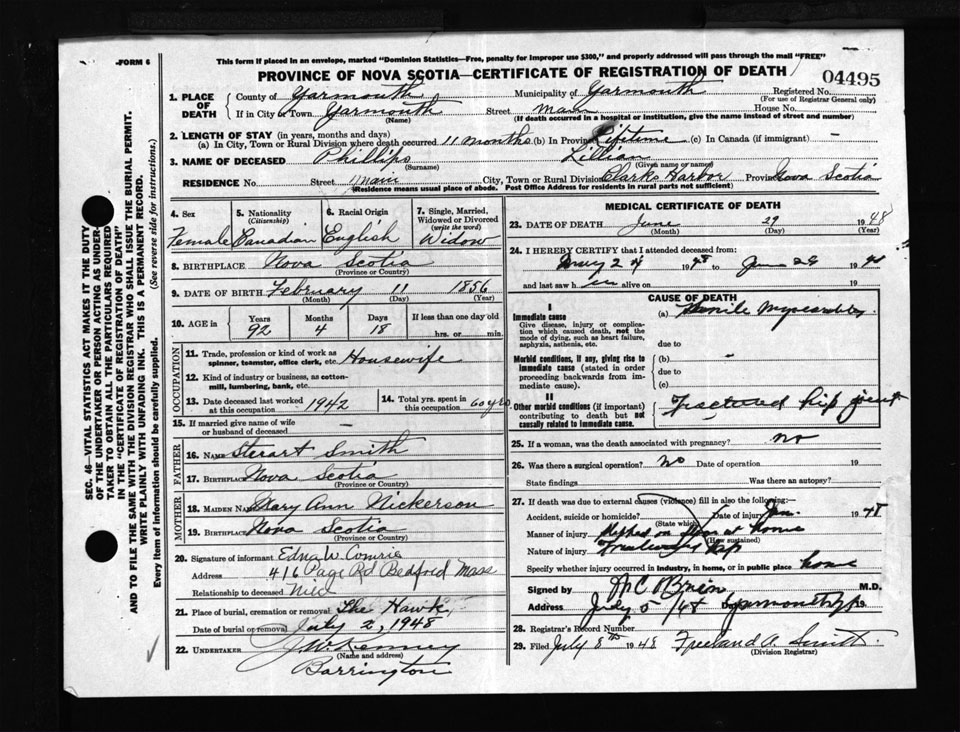 -FORM 6
This form if placed in an envelope, marked "Dominion Statistics—Free, penalty for improper use $300," and properly addressed will pass through the mail "FREE"
PROVINCE OF NOVA SCOTIA—CERTIFICATE OF REGISTRATION OF DEATH
04495
1. PLACE OF DEATH
County of Yarmouth Municipality of Yarmouth Registered No.
(For use of Registrar General only)
If in City or Town Yarmouth Street Main House No.
(Name) (If death occurred in a hospital or institution, give the name instead of street and number)
2. LENGTH OF STAY (in years, months and days)
(a) In City, Town or Rural Division where death occurred 11 months (b) In Province Lifetime (c) In Canada (if immigrant) —
3. NAME OF DECEASED Phillips Lillian
(Surname) (Given name or names)
RESIDENCE No. Street Main City, Town or Rural Division Clarks Harbor Province Nova Scotia
(Residence means usual place of abode. Post Office Address for residents in rural parts not sufficient)
4. Sex 5. Nationality (Citizenship) 6. Racial Origin 7. Single, Married, Widowed or Divorced (write the word)
Female Canadian English Widow
8. BIRTHPLACE Nova Scotia
(Province or Country)
9. DATE OF BIRTH February 11 1856
(Month) (Day) (Year)
10. AGE in Years Months Days If less than one day old
92 4 18 hrs. or min.
OCCUPATION
11. Trade, profession or kind of work as spinner, teamster, office clerk, etc. Housewife
12. Kind of industry or business, as cotton-mill, lumbering, bank, etc.
13. Date deceased last worked at this occupation 1942 14. Total yrs. spent in this occupation 60 yrs
15. If married give name of wife or husband of deceased —
FATHER
16. NAME Smith
17. BIRTHPLACE Nova Scotia
(Province or Country)
MOTHER
18. MAIDEN NAME Mary Ann Nickerson
19. BIRTHPLACE Nova Scotia
(Province or Country)
20. Signature of informant Edna W. Comrie
Address 416 Page Rd Bedford Mass
Relationship to deceased
21. Place of burial, cremation or removal The Hawk
Date of burial or removal July 2, 1948
22. UNDERTAKER
(Name and address)
Barrington
MEDICAL CERTIFICATE OF DEATH
23. DATE OF DEATH June 29 1948
(Month) (Day) (Year)
24. I HEREBY CERTIFY that I attended deceased from:
1948 to 19
and last saw h alive on 19
CAUSE OF DEATH
I
Immediate cause
Give disease, injury or complication which caused death, not the mode of dying, such as heart failure, asphyxia, asthenia, etc.
(a) Senile
due to
Morbid conditions, if any, giving rise to immediate cause (stated in order proceeding backwards from immediate cause).
(b) —
due to
(c)
II
Other morbid conditions (if important) contributing to death but not causally related to immediate cause.
Fractured hip joint
25. If a woman, was the death associated with pregnancy? no
26. Was there a surgical operation? No Date of operation 19
State findings Was there an autopsy?
27. If death was due to external causes (violence) fill in also the following:-
Accident, suicide or homicide? Date of injury Jan. 1948
(State which)
Manner of injury on floor at home
(How sustained)
Nature of injury hip
Specify whether injury occurred in industry, in home, or in public place home
Signed by M.D.
Address 19
28. Registrar's Record Number
29. Filed July 8th 1948 Freeland A. Smith
(Division Registrar)
SEC. 46—VITAL STATISTICS ACT MAKES IT THE DUTY OF THE UNDERTAKER OR PERSON ACTING AS UNDERTAKER TO OBTAIN ALL THE PARTICULARS REQUIRED IN THE "CERTIFICATE OF REGISTRATION OF DEATH" AND TO FILE THE SAME WITH THE DIVISION REGISTRAR WHO SHALL ISSUE THE BURIAL PERMIT.
WRITE PLAINLY WITH UNFADING INK. THIS IS A PERMANENT RECORD.
Every item of information should be carefully supplied. (See reverse side for instructions.)